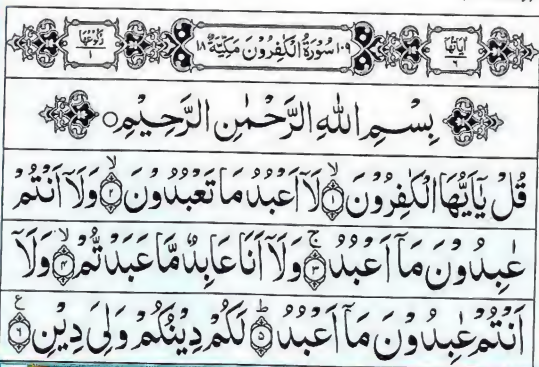 اٰيَاتُهَا ٦ ١٠٩ سُوْرَةُ الْكٰفِرُوْنَ مَكِّيَّةٌ ١٨ رُكُوْعُهَا ١
بِسْمِ اللهِ الرَّحْمٰنِ الرَّحِيْمِ
قُلْ يٰٓاَيُّهَا الْكٰفِرُوْنَ ۙ﴿١﴾ لَاۤ اَعْبُدُ مَا تَعْبُدُوْنَ ۙ﴿٢﴾ وَلَاۤ اَنْتُمْ
عٰبِدُوْنَ مَاۤ اَعْبُدُ ۚ﴿٣﴾ وَلَاۤ اَنَا عَابِدٌ مَّا عَبَدْتُّمْ ۙ﴿٤﴾ وَلَاۤ
اَنْتُمْ عٰبِدُوْنَ مَاۤ اَعْبُدُ ؕ﴿٥﴾ لَكُمْ دِيْنُكُمْ وَلِيَ دِيْنِ ﴿٦﴾ ع